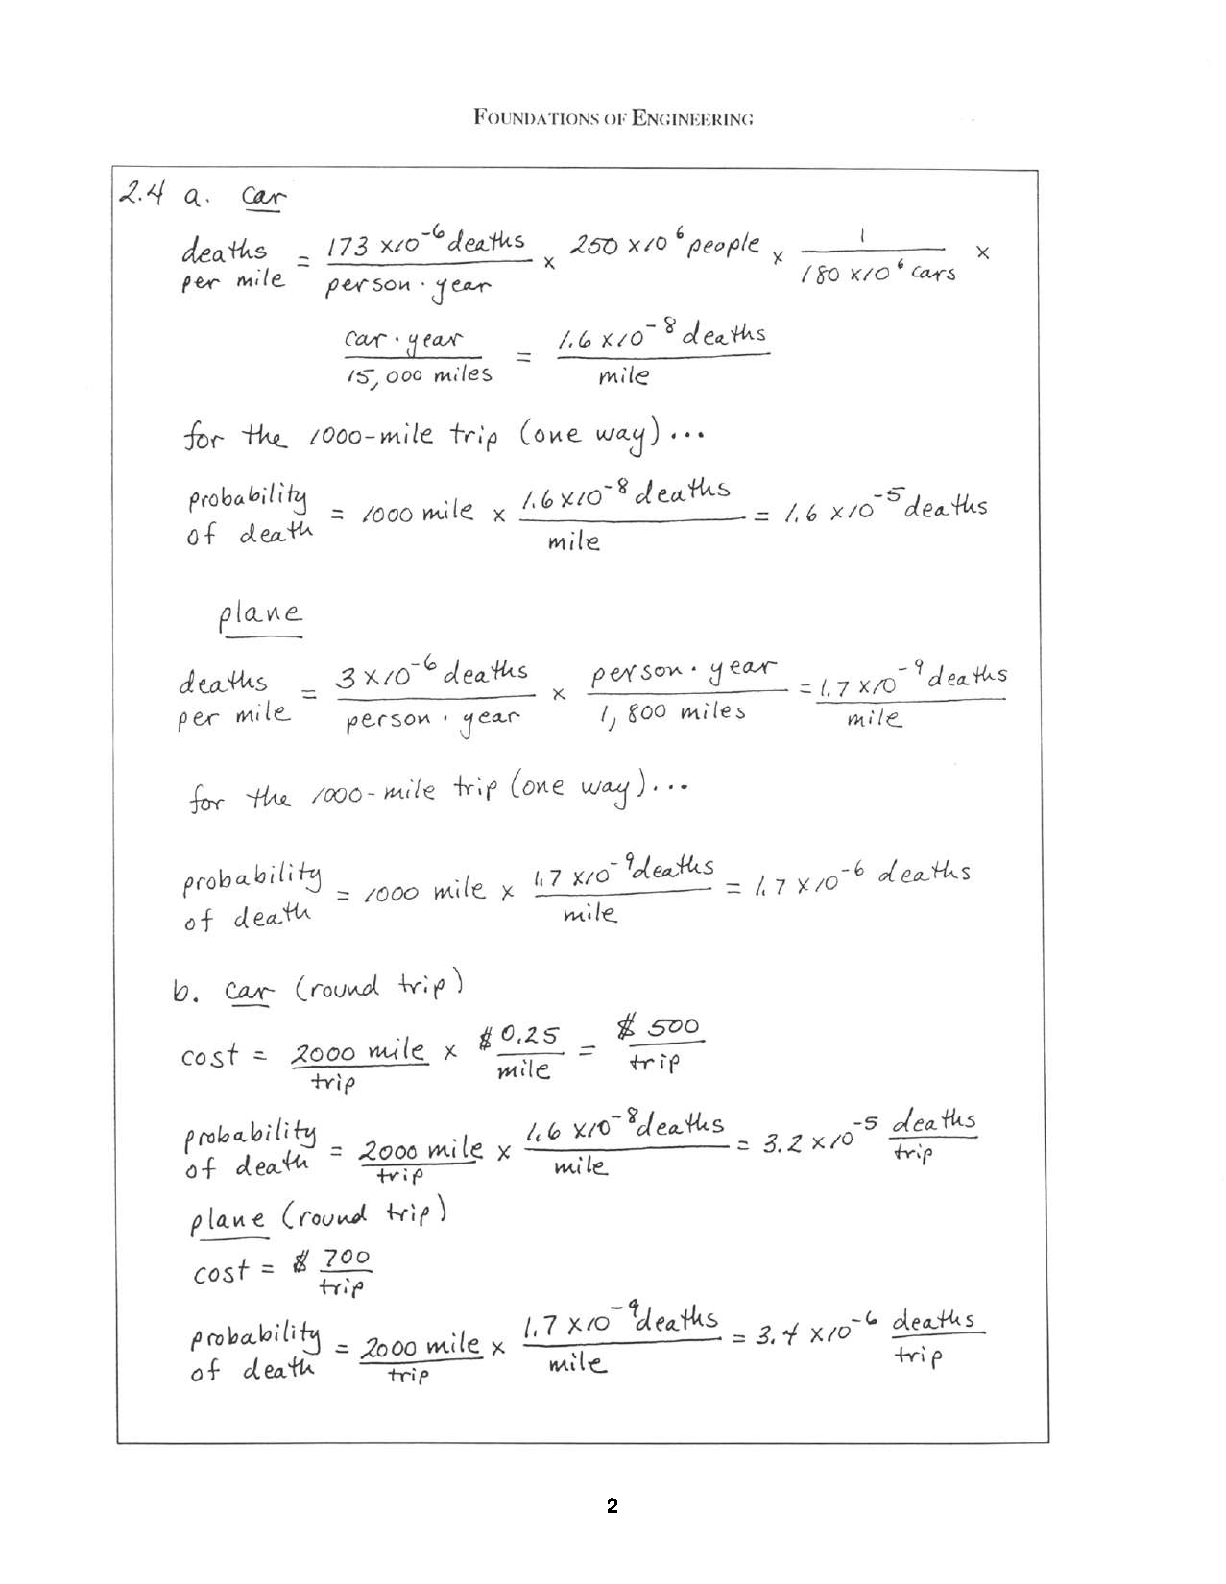 FOUNDATIONS OF ENGINEERING
2.4 a. car
deaths per mile = 173 x10^-6 deaths / person · year x 250 x10^6 people x 1 / 180 x10^6 cars x
car · year / 15,000 miles = 1.6 x10^-8 deaths / mile
for the 1000-mile trip (one way)...
probability of death = 1000 mile x 1.6 x10^-8 deaths / mile = 1.6 x10^-5 deaths
plane
deaths per mile = 3 x10^-6 deaths / person · year x person · year / 1,800 miles = 1.7 x10^-9 deaths / mile
for the 1000-mile trip (one way)...
probability of death = 1000 mile x 1.7 x10^-9 deaths / mile = 1.7 x10^-6 deaths
b. car (round trip)
cost = 2000 mile / trip x $0.25 / mile = $500 / trip
probability of death = 2000 mile / trip x 1.6 x10^-8 deaths / mile = 3.2 x10^-5 deaths / trip
plane (round trip)
cost = $ 700 / trip
probability of death = 2000 mile / trip x 1.7 x10^-9 deaths / mile = 3.4 x10^-6 deaths / trip
2